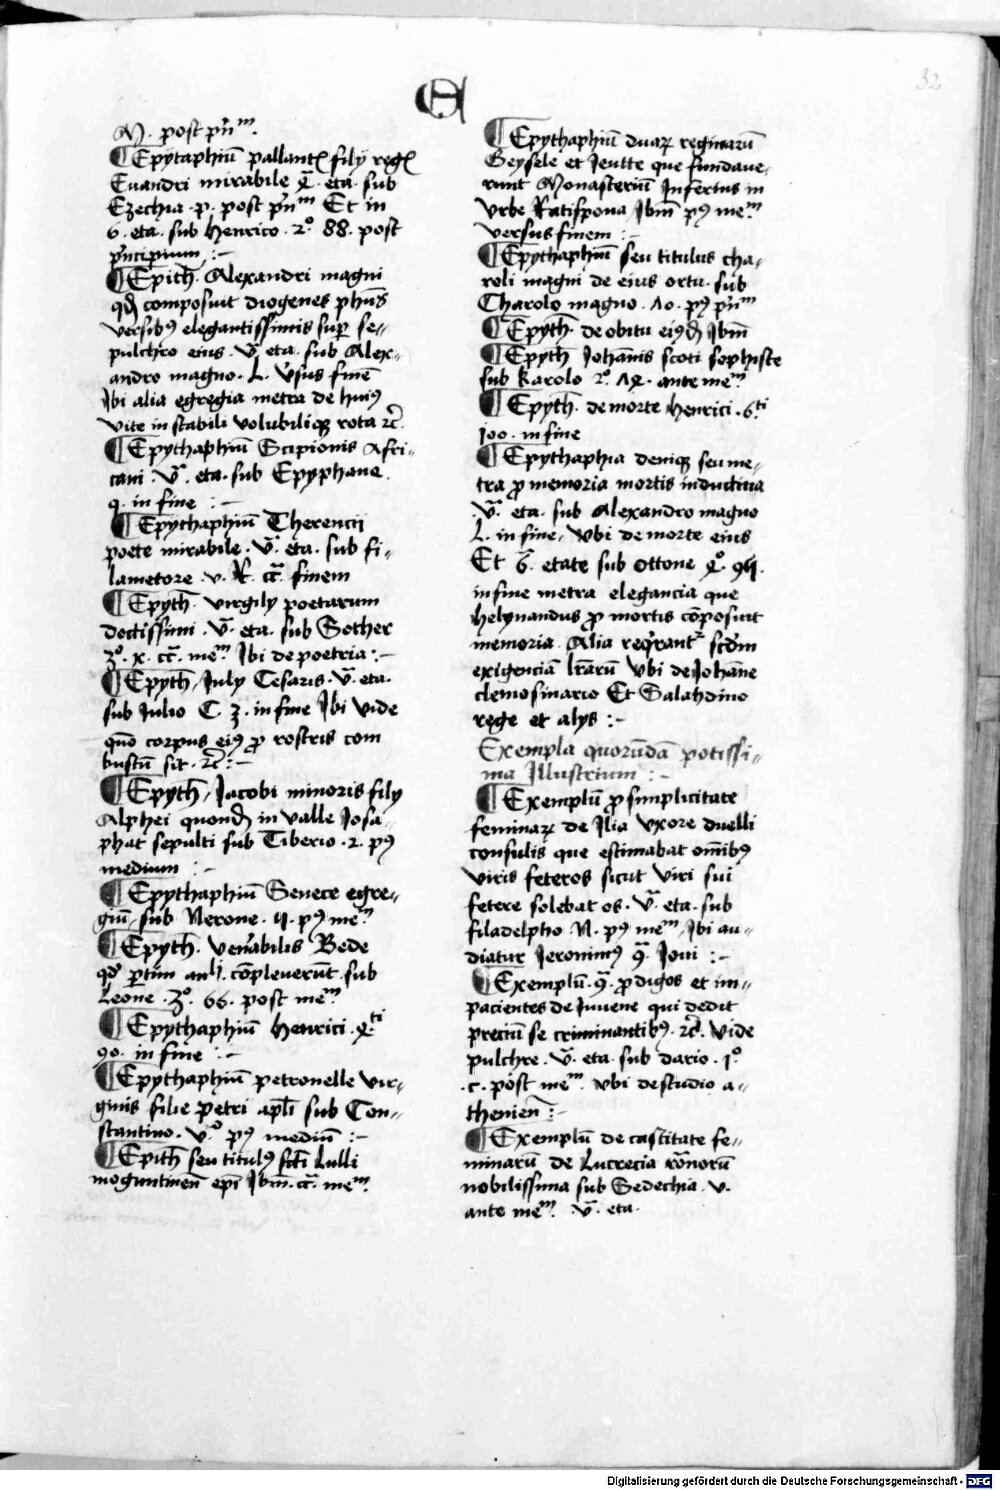 E
32
N. post prīnm.
¶ Epytaphiū pallantꝭ filij regꝭ
Euandri mirabile 4ᵃ. eta. sub
Ezechia. p. post prīnm Et in
6. eta. sub Henrico. 2º. 88. post
prīncipium :-
¶ Epith. Alexandri magni
qd composuit diogenes phūs
versibꝰ elegantissimis sup se-
pulchro eius. vᵃ. eta. sub Alex-
andro magno. L. vsus finē
Jbi alia egregia metra de huiꝰ
vite in stabili volubiliqꝫ rota ꝛc̄.
¶ Epythaphiū Scipionis Afri-
cani. vᵃ. eta. sub Epyphane
q. in fine :-
¶ Epythaphiū Therencij
poete mirabile. vᵃ. eta. sub fi-
lametore. v. R. cᵃ. finem
¶ Epyth. virgilij poetarum
doctissimi. vᵃ. eta. sub Sother
3º. x. cᵃ. meᵐ. Jbi de poetria :-
¶ Epyth. Julij Cesaris. vᵃ. eta.
sub Julio C. 3. in fine Jbi vide
quō corpus eiꝰ ꝓ rostris com
bustū sit. ꝛc̄ :-
¶ Epyth. Jacobi minoris filij
Alphei quondā in valle Josa-
phat sepulti sub Tiberio. 2. pꝰ
medium :-
¶ Epythaphiū Senece egre-
giū. sub Nerone. 11. pꝰ meᵐ
¶ Epyth. ven̄abilis Bede
qd ꝑtim anḡli cōpleuerūt. sub
Leone. 3º. 66. post meᵐ
¶ Epythaphiū Henrici. 4ᵗⁱ
90. in fine :-
¶ Epythaphiū petronelle vir-
ginis filie Petri apl̄i sub Con-
stantino. vº. pꝰ mediū :-
¶ Epith seu titulꝰ sc̄i Lulli
moguntineñ epī Jbm̄. cᵃ. meᵐ.
¶ Epythaphiū duaꝝ reginarū
Geysele et Jeutte que fundaue-
runt Monasteriū Jnferius in
vrbe Ratispona Jbm̄ pꝰ meᵐ
versus finem :-
¶ Epythaphiū seu titulus cha-
roli magni de eius ortu. sub
Charolo magno. 10. pꝰ prīnm
¶ Epyth. de obitu eiꝰd Jbm̄
¶ Epyth Johānis scoti sophiste
sub Karolo 2º. 14. ante meᵐ.
¶ Epyth. de morte Henrici. 6ᵗⁱ
100. in fine
¶ Epythaphia deniqꝫ seu me-
tra ꝓ memoria mortis inductiua
vᵃ. eta. sub Alexandro magno
L. in fine. vbi de morte eius
Et 6ᵃ. etate sub Ottone 4º.
in fine metra elegancia que
Helynandus ꝓ mortis cōposuit
memoria. Alia reqͥrantʳ scd̄m
exigenciā lr̄arū vbi de Johāne
elemosinario Et Salahdino
rege et alijs :-
Exempla quorūdā potissi-
ma Jllustrium :-
¶ Exemplū ꝓ simplicitate
feminaꝝ de Jlia vxore duelli
consulis que estimabat om̄ibꝰ
viris feteros sicut viri sui
fetere solebat os. vᵃ. eta. sub
filadelpho N. pꝰ meᵐ. Jbi au-
diatur Jeronimꝰ 9ᵃ. Joui :-
¶ Exemplū. 9ᵃ. ꝓdigos et im-
pacientes de Juuene qui dedit
preciū se criminantibꝰ. ꝛc̄. vide
pulchre. vᵃ. eta. sub dario. 1º
.c. post meᵐ. vbi de studio a-
thenien̄ :-
¶ Exemplū de castitate fe-
minarū de Lucrecia rōnorū
nobilissima sub Sedechia. v.
ante meᵐ. vᵃ. eta.
Digitalisierung gefördert durch die Deutsche Forschungsgemeinschaft - DFG